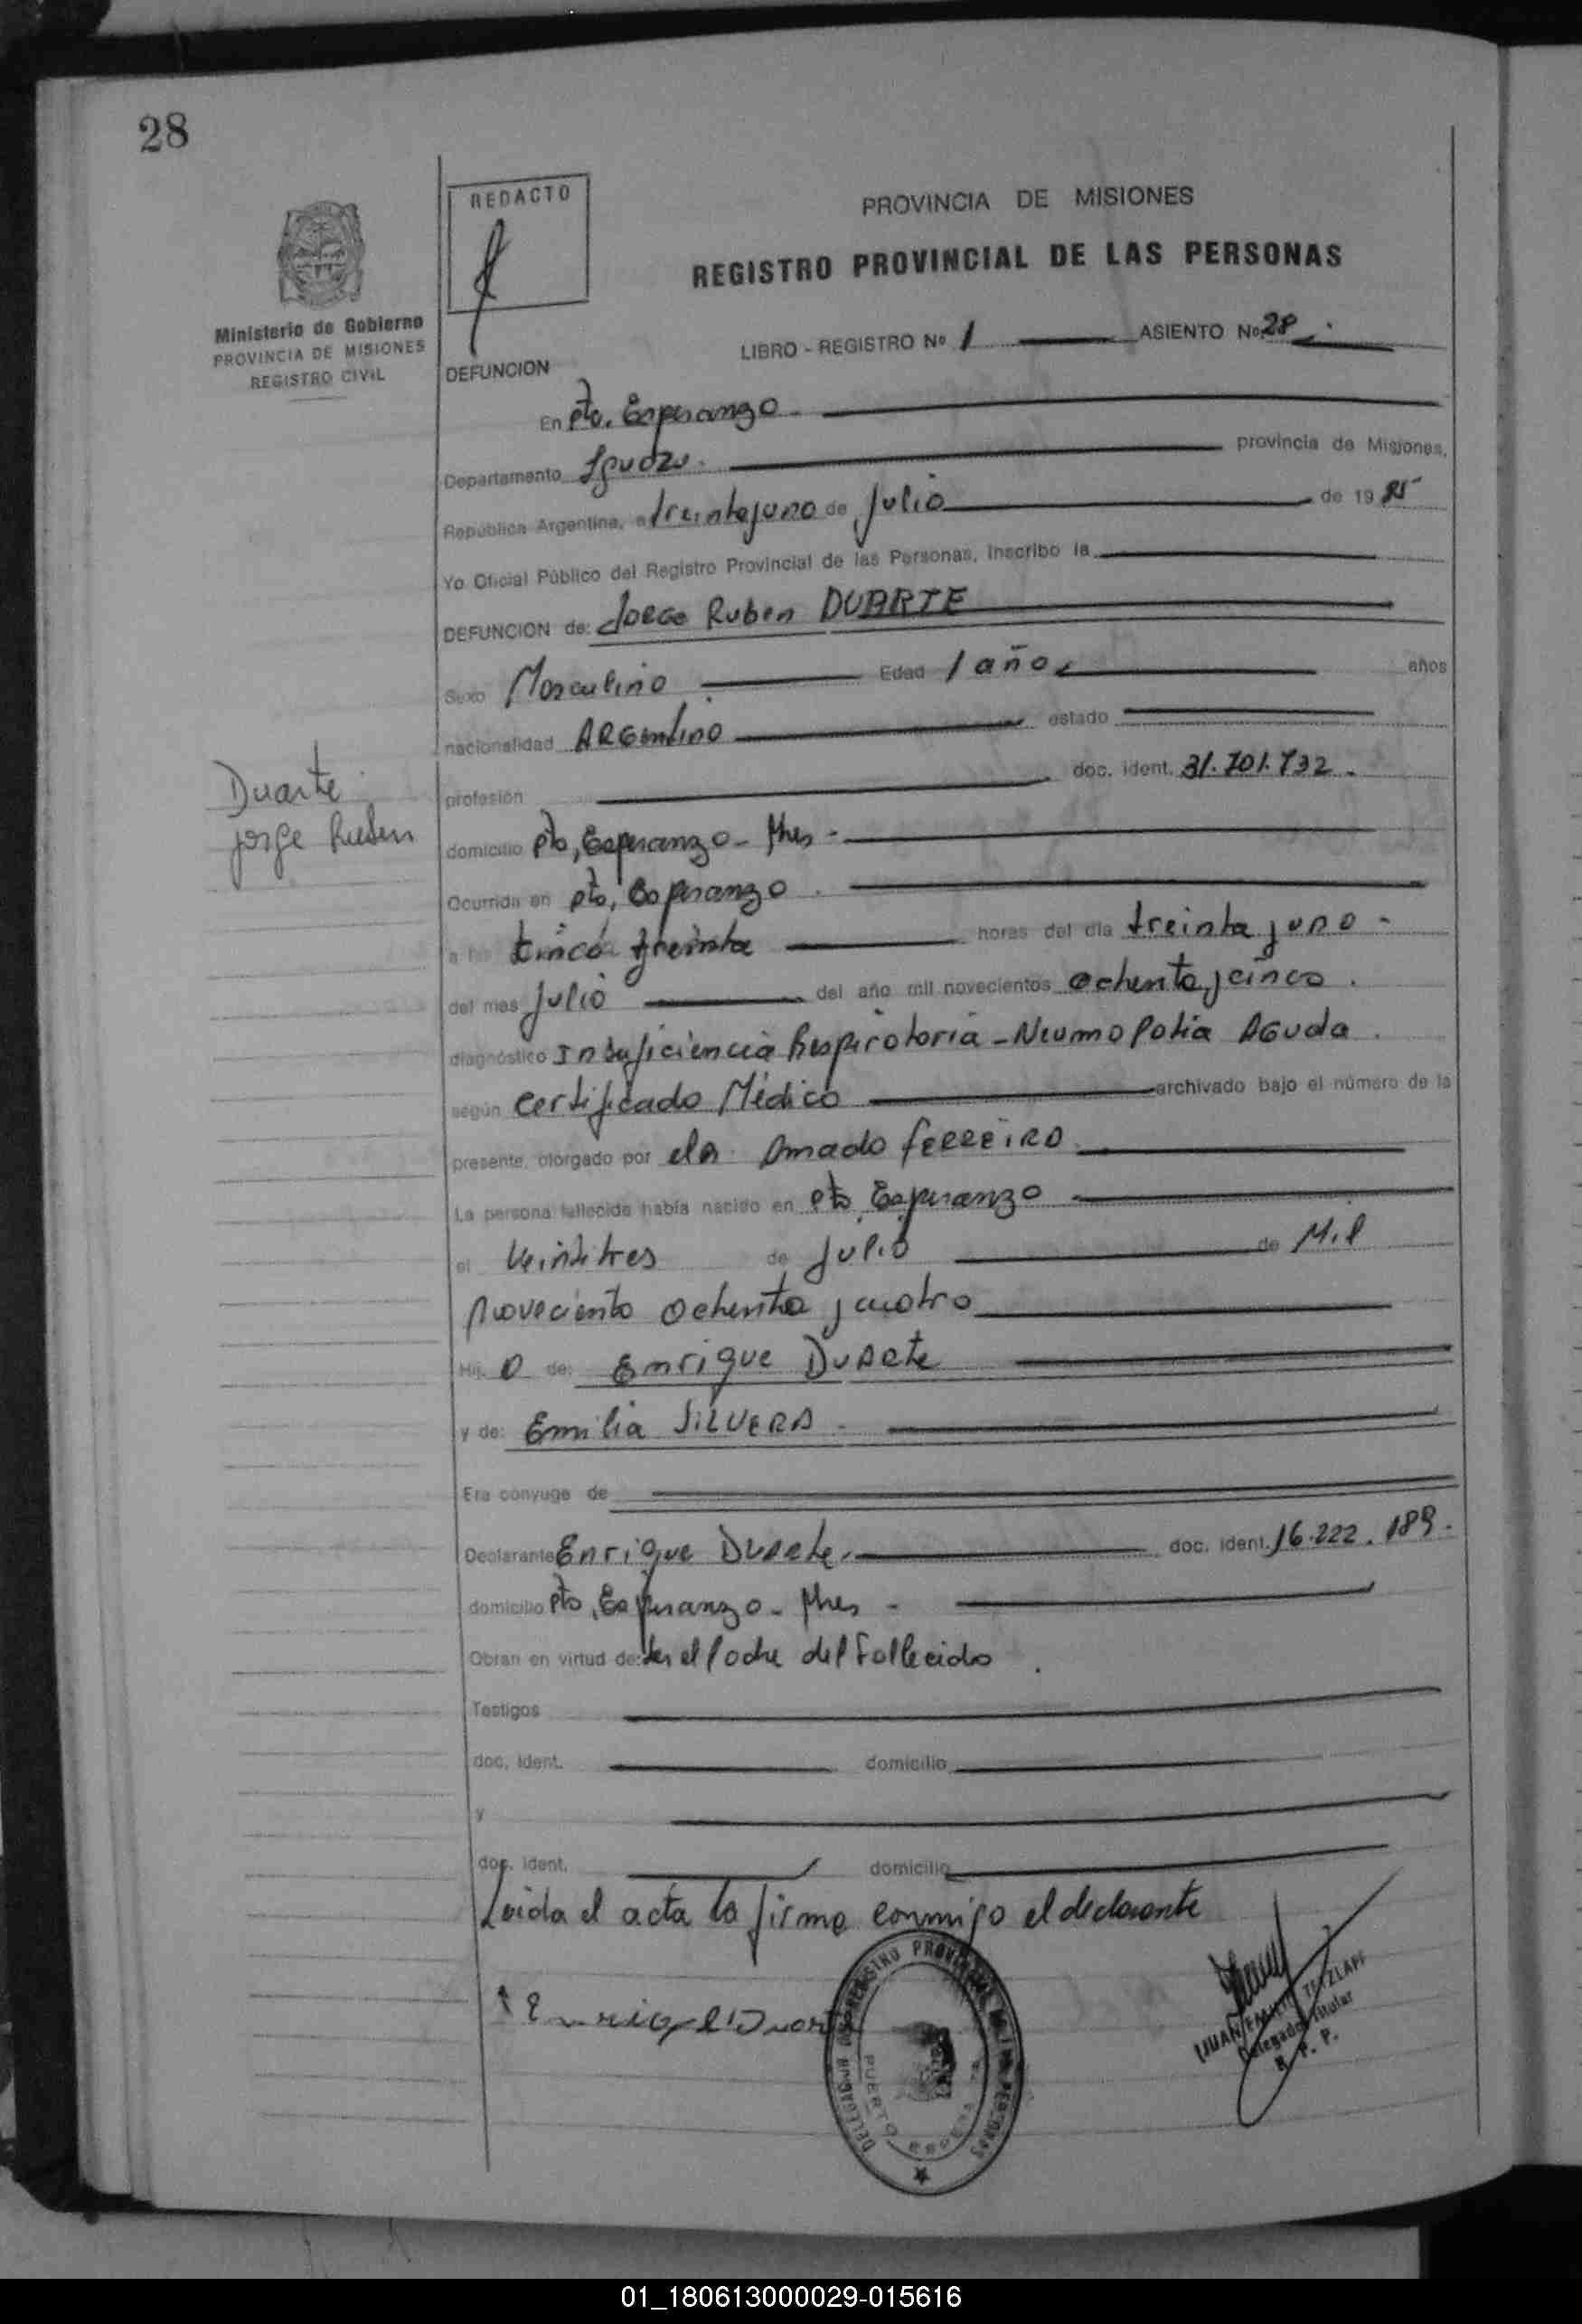 28
REDACTO
PROVINCIA DE MISIONES
REGISTRO PROVINCIAL DE LAS PERSONAS
Ministerio de Gobierno
PROVINCIA DE MISIONES
REGISTRO CIVIL
LIBRO - REGISTRO Nº 1 ASIENTO Nº 28
DEFUNCION
En Pto. Esperanza
Departamento Iguazu. provincia de Misiones,
República Argentina, a treinta y uno de Julio de 1985
Yo Oficial Público del Registro Provincial de las Personas, inscribo la
DEFUNCION de: Jorge Ruben DUARTE
Sexo Masculino Edad 1 año años
nacionalidad ARGentino estado
Duarte
Jorge Ruben
profesión doc. ident. 31.701.732.
domicilio Pto, Esperanza - Mnes -
Ocurrida en Pto, Esperanza.
a las cinco treinta horas del día treinta y uno -
del mes Julio del año mil novecientos ochenta y cinco.
diagnóstico Insuficiencia Respiratoria - Neumopatia AGuda.
según certificado Médico archivado bajo el número de la
presente, otorgado por el Amado FERREIRO
La persona fallecida había nacido en Pto Esperanza
el Veintitres de Julio de Mil
Noveciento ochenta y cuatro
Hij o de: Enrique Duarte
y de: Emilia SILVERA -
Era cónyuge de
Declarante Enrique Duarte. doc. ident. 16.222.189.
domicilio Pto, Esperanza - Mnes -
Obran en virtud de: ser el Padre del Fallecido.
Testigos
doc. ident. domicilio
y
doc. ident. domicilio
Leida el acta la firma conmigo el declarante
Enrique Duarte
DELEGACION REGISTRO PROVINCIAL DE LAS PERSONAS
PUERTO ESPERANZA
JUAN EMILIO TETZLAFF
Delegado Titular
R. P. P.
01_180613000029-015616